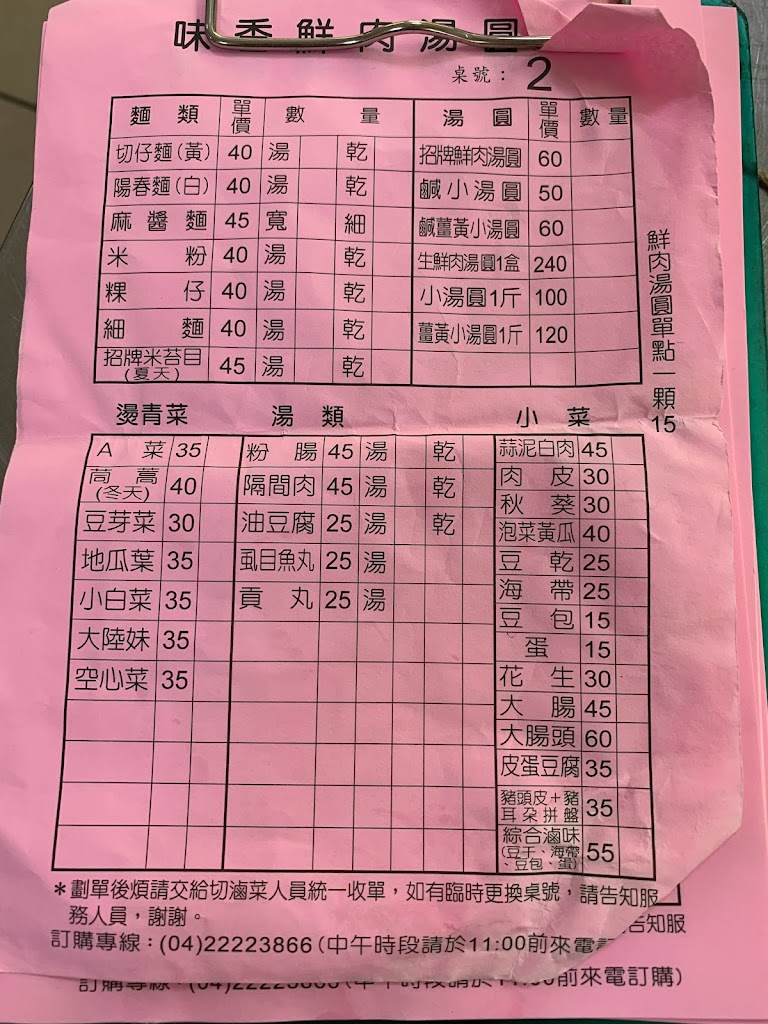 味香鮮肉湯圓
桌號：2
麵類 單價 數量 湯圓 單價 數量
切仔麵(黃) 40 湯 乾 招牌鮮肉湯圓 60
陽春麵(白) 40 湯 乾 鹹小湯圓 50
麻醬麵 45 寬 細 鹹薑黃小湯圓 60
米粉 40 湯 乾 生鮮肉湯圓1盒 240
粿仔 40 湯 乾 小湯圓1斤 100
細麵 40 湯 乾 薑黃小湯圓1斤 120
招牌米苔目(夏天) 45 湯 乾
鮮肉湯圓單點一顆15
燙青菜 湯類 小菜
A菜 35 粉腸 45 湯 乾 蒜泥白肉 45
茼蒿(冬天) 40 隔間肉 45 湯 乾 肉皮 30
豆芽菜 30 油豆腐 25 湯 乾 秋葵 30
地瓜葉 35 虱目魚丸 25 湯 泡菜黃瓜 40
小白菜 35 貢丸 25 湯 豆乾 25
大陸妹 35 海帶 25
空心菜 35 豆包 15
蛋 15
花生 30
大腸 45
大腸頭 60
皮蛋豆腐 35
豬頭皮＋豬耳朵拼盤 35
綜合滷味(豆干、海帶、豆包、蛋) 55
＊劃單後煩請交給切滷菜人員統一收單，如有臨時更換桌號，請告知服
務人員，謝謝。
告知服
訂購專線：(04)22223866(中午時段請於11:00前來電訂
訂購專線：(04)22223866(中午時段請於11:00前來電訂購)